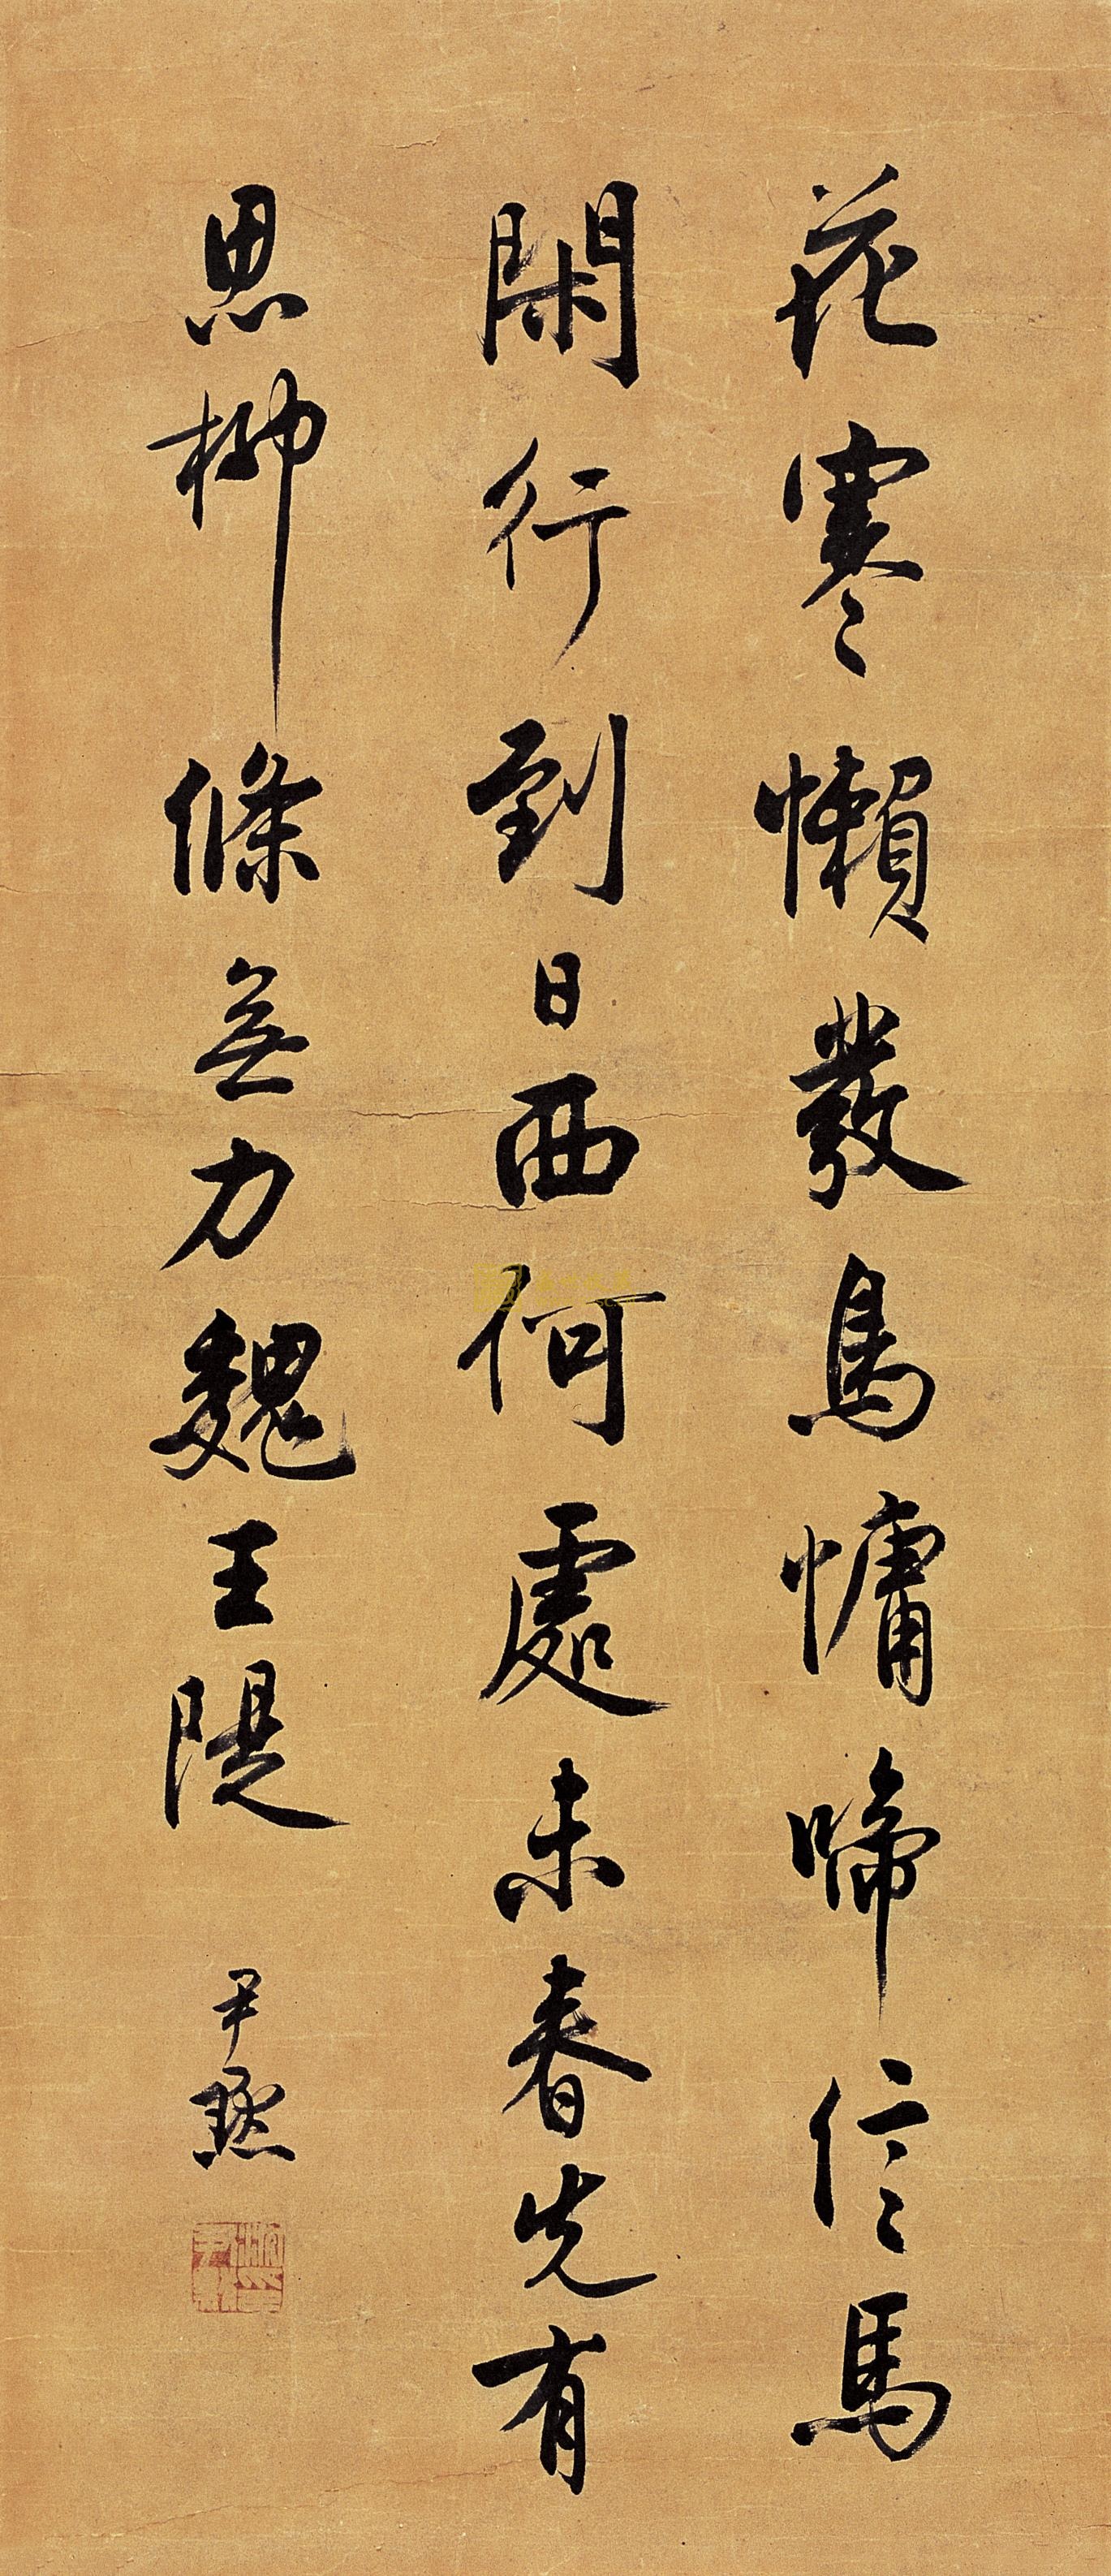 花寒懶發鳥慵啼信馬
閑行到日西何處未春先有
思柳條無力魏王隄
尹默